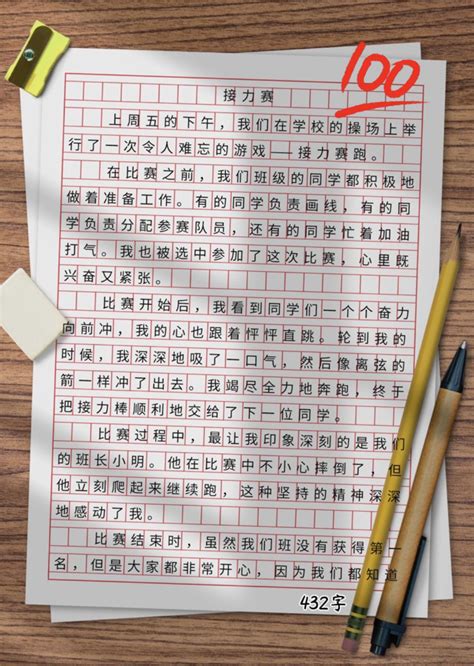 100
接力赛
上周五的下午，我们在学校的操场上举
行了一次令人难忘的游戏——接力赛跑。
在比赛之前，我们班级的同学都积极地
做着准备工作。有的同学负责画线，有的同
学负责分配参赛队员，还有的同学忙着加油
打气。我也被选中参加了这次比赛，心里既
兴奋又紧张。
比赛开始后，我看到同学们一个个奋力
向前冲，我的心也跟着怦怦直跳。轮到我的
时候，我深深地吸了一口气，然后像离弦的
箭一样冲了出去。我竭尽全力地奔跑，终于
把接力棒顺利地交给了下一位同学。
比赛过程中，最让我印象深刻的是我们
的班长小明。他在比赛中不小心摔倒了，但
他立刻爬起来继续跑，这种坚持的精神深深
地感动了我。
比赛结束时，虽然我们班没有获得第一
名，但是大家都非常开心，因为我们都知道
432字